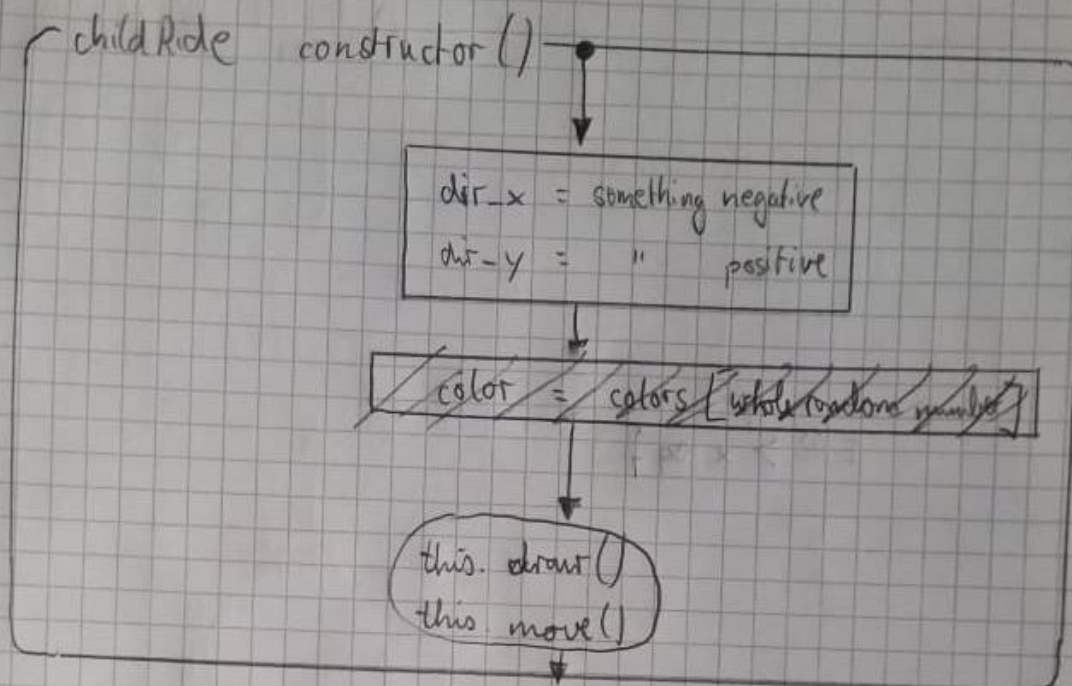 childRide constructor()
dir_x = something negative
dir_y = " positive
color = colors [whole random number]
this.draw()
this.move()